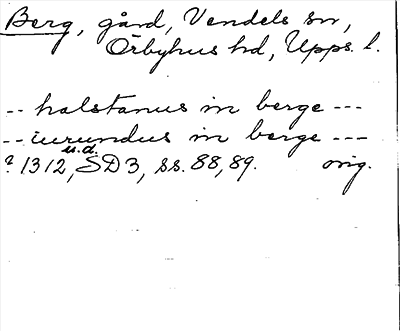 Berg, gård, Vendels sn,
Örbyhus hd, Upps. l.
-- halstanus in berge ---
-- iurundus in berge ---
u.d.
? 1312, SD3, ss. 88, 89. orig.